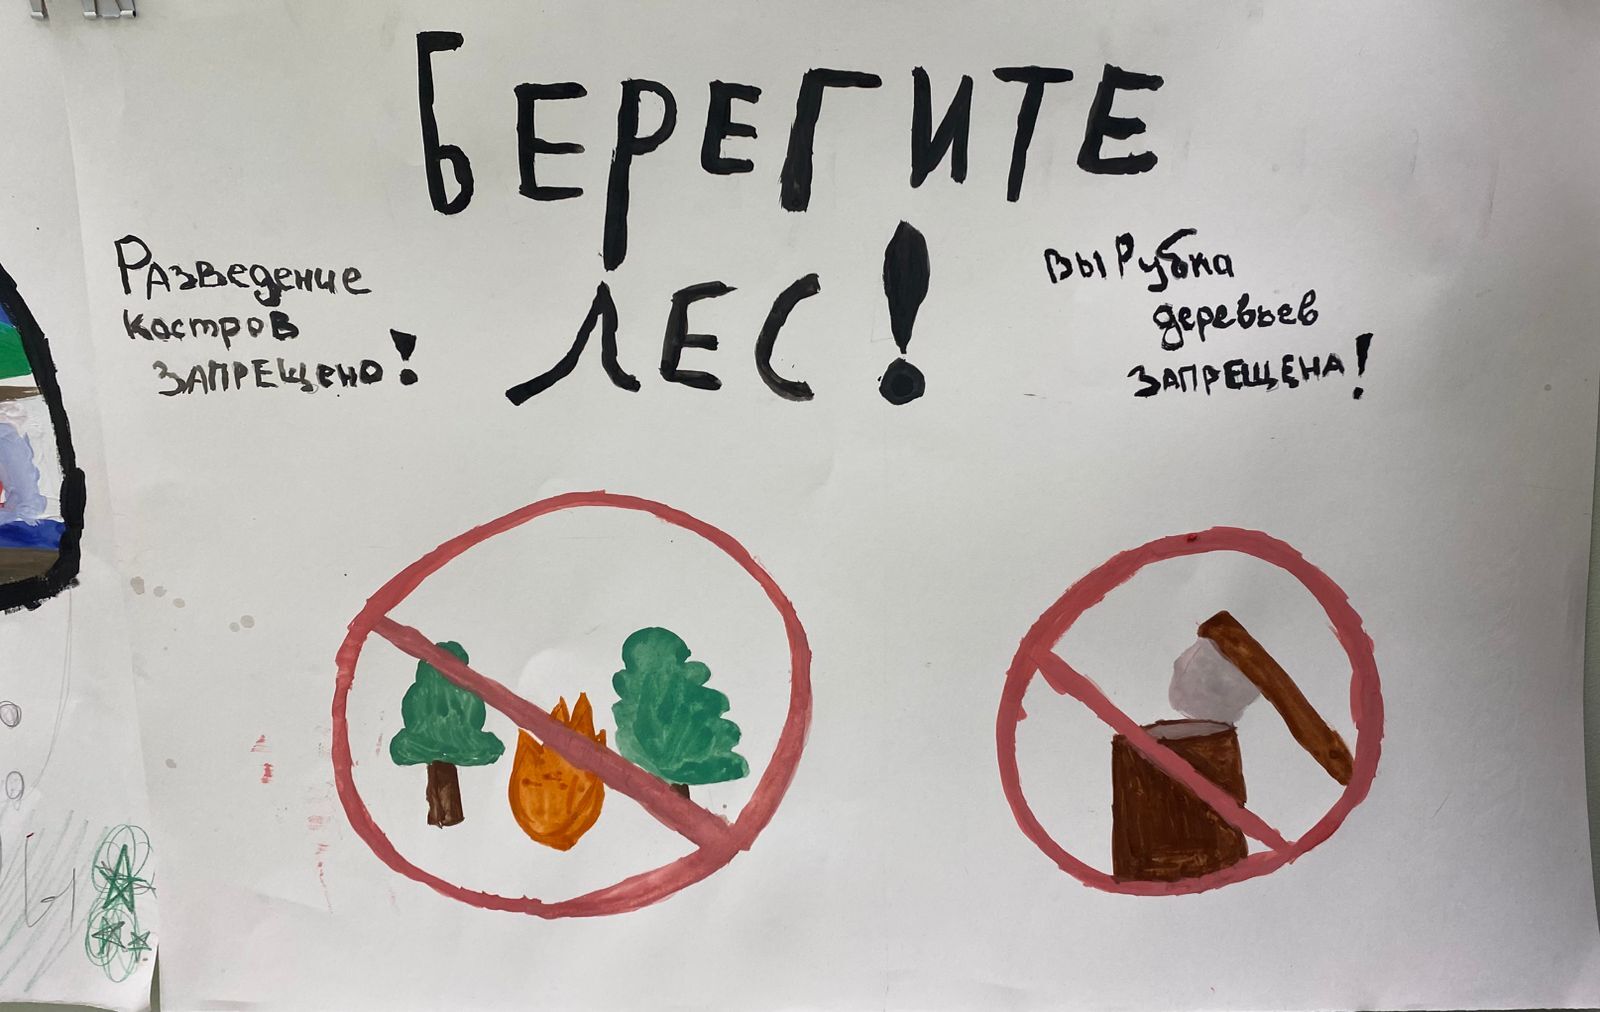 БЕРЕГИТЕ
ЛЕС!
Разведение
костров
ЗАПРЕЩЕНО!
ВЫРубка
деревьев
ЗАПРЕЩЕНА!